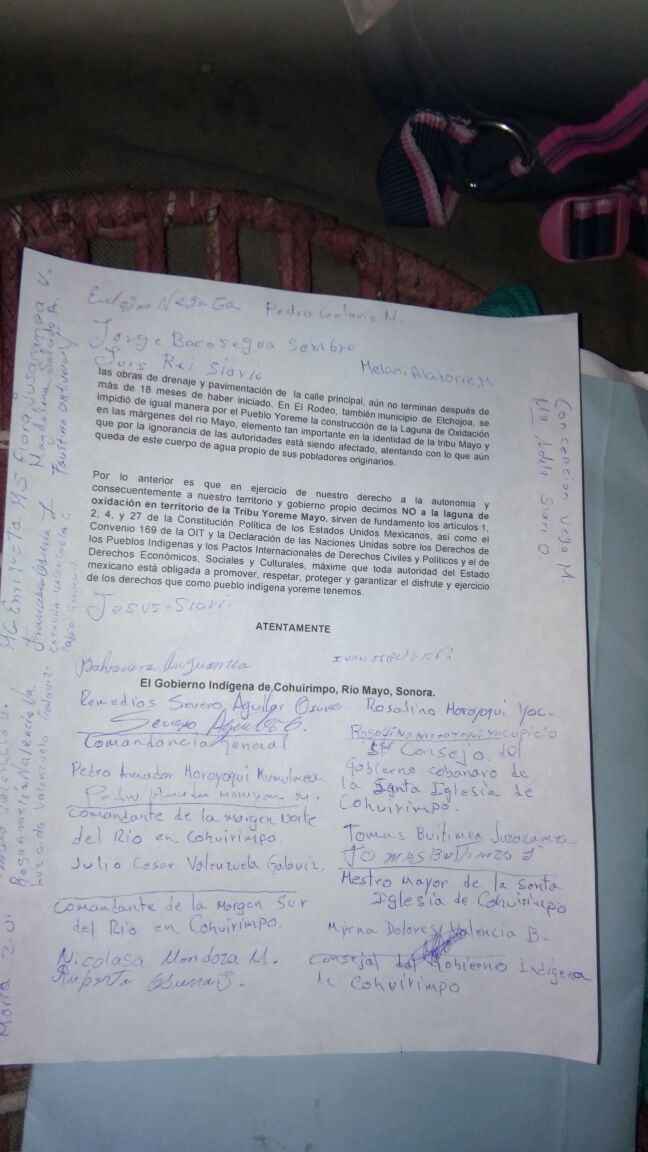 Pedro Galaviz N.
Jorge Bacasegua Sombra
Luis Rei Siari
Melani Alatorre. M
las obras de drenaje y pavimentación de la calle principal, aún no terminan después de
más de 18 meses de haber iniciado. En El Rodeo, también municipio de Etchojoa, se
impidió de igual manera por el Pueblo Yoreme la construcción de la Laguna de Oxidación
en las márgenes del río Mayo, elemento tan importante en la identidad de la tribu Mayo y
que por la ignorancia de las autoridades está siendo afectado, atentando con lo que aún
queda de este cuerpo de agua propio de sus pobladores originarios.
Por lo anterior es que en ejercicio de nuestro derecho a la autonomía y
consecuentemente a nuestro territorio y gobierno propio decimos NO a la laguna de
oxidación en territorio de la Tribu Yoreme Mayo, sirven de fundamento los artículos 1,
2, 4, y 27 de la Constitución Política de los Estados Unidos Mexicanos, así como el
Convenio 169 de la OIT y la Declaración de las Naciones Unidas sobre los Derechos de
los Pueblos Indígenas y los Pactos Internacionales de Derechos Civiles y Políticos y el de
Derechos Económicos, Sociales y Culturales, máxime que toda autoridad del Estado
mexicano está obligada a promover, respetar, proteger y garantizar el disfrute y ejercicio
de los derechos que como pueblo indígena yoreme tenemos.
Jesus. Siari.
ATENTAMENTE
El Gobierno Indígena de Cohuirimpo, Río Mayo, Sonora.
Remedios Severo Aguilar Osuna
Severo Aguilar O.
Comandancia General
Pedro Amador Moroyoqui
Comandante de la margen Norte
del Río en Cohuirimpo.
Julio Cesar Valenzuela Galaviz.
Comandante de la Margen Sur
del Río en Cohuirimpo.
Nicolasa Mendoza M.
Ruperta Osuna S.
Rosalino Moroyoqui Yoc.
Rosalino moroyoqui yocupicio
Consejo del
Gobierno cobanaro de
la Santa Iglesia de
Cohuirimpo.
Tomas Buitimea
Mestro Mayor de la Santa
Iglesia de Cohuirimpo
Myrna Dolores Valencia B.
Consejal del Gobierno Indígena
de Cohuirimpo
Concepcion Vega M.
Siari O
Rosa amelia Valencia Va
Luz aida Valenzuela Galaviz.
Francisco Osuna
Magdalena
Faustino